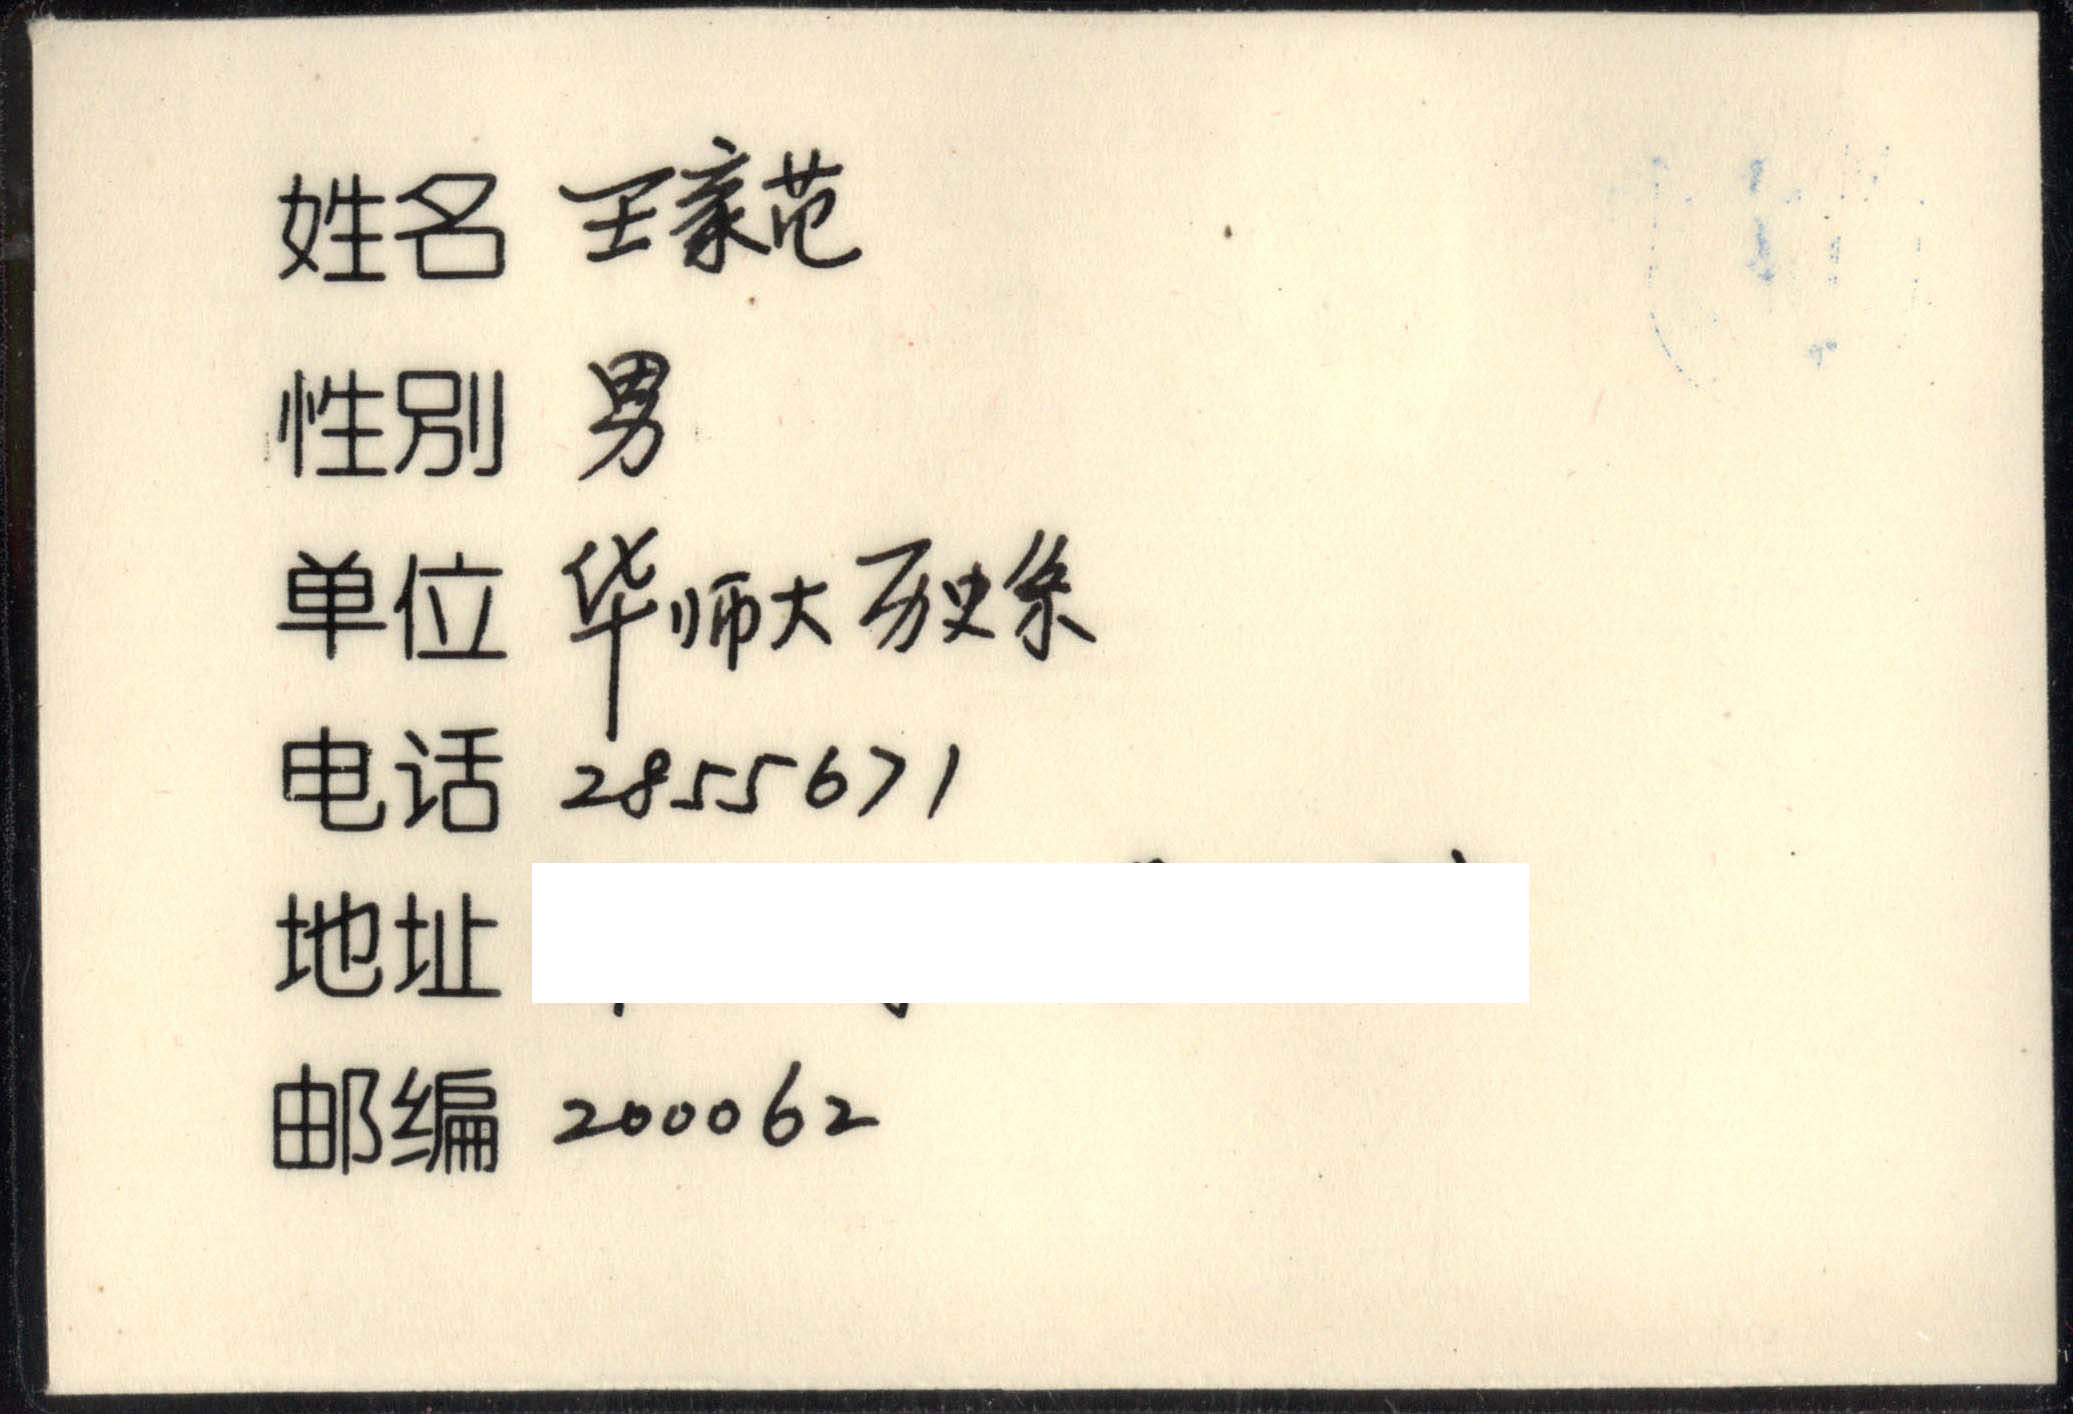 姓名 王家范
性别 男
单位 华师大历史系
电话 2855671
地址
邮编 200062